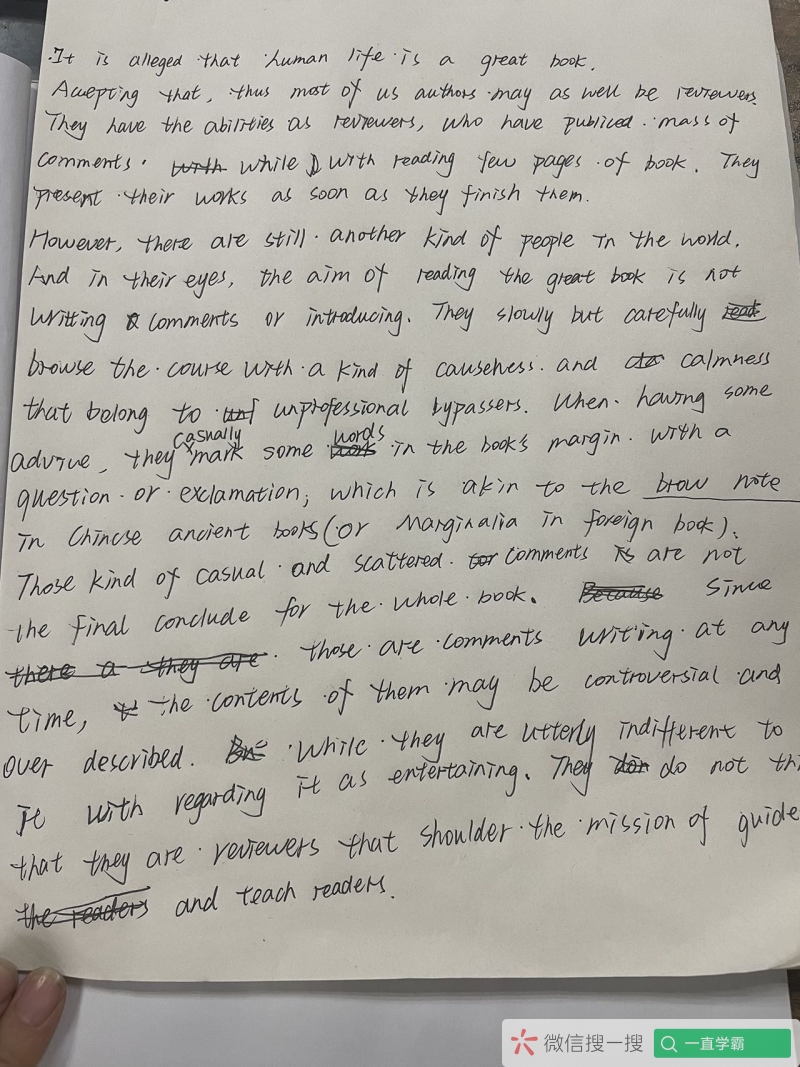 It is alleged that human life is a great book.
Accepting that, thus most of us authors may as well be reviewers.
They have the abilities as reviewers, who have publiced mass of
comments. while with reading few pages of book. They
present their works as soon as they finish them.
However, there are still another kind of people in the world.
And in their eyes, the aim of reading the great book is not
writting comments or introducing. They slowly but carefully
browse the course with a kind of and calmness
that belong to unprofessional bypassers. When having some
advice, they casually mark some words in the book's margin. with a
question or exclamation, which is akin to the brow note
in Chinese ancient books (or Marginalia in foreign book).
Those kind of casual and scattered comments are not
the final conclude for the whole book. Since
those are comments writing at any
time, the contents of them may be controversial and
over described. While they are utterly indifferent to
it with regarding it as entertaining. They do not thi
that they are reviewers that shoulder the mission of guide
and teach readers.
微信搜一搜 一直学霸